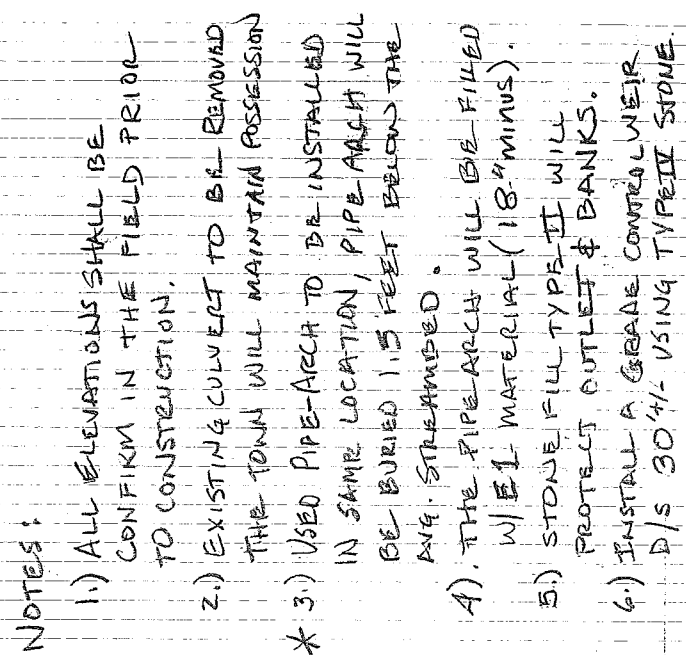 NOTES:
1.) ALL ELEVATIONS SHALL BE
CONFIRM IN THE FIELD PRIOR
TO CONSTRUCTION.
2.) EXISTING CULVERT TO BE REMOVED
THE TOWN WILL MAINTAIN POSSESSION
* 3.) USED PIPE-ARCH TO BE INSTALLED
IN SAME LOCATION, PIPE ARCH WILL
BE BURIED 1.5 FEET BELOW THE
AVG. STREAMBED.
4). THE PIPE ARCH WILL BE FILLED
W/ E1 MATERIAL (18" MINUS).
5.) STONE FILL TYPE II WILL
PROTECT OUTLET & BANKS.
6.) INSTALL A GRADE CONTROL WEIR
D/S 30'+/- USING TYPE IV STONE.